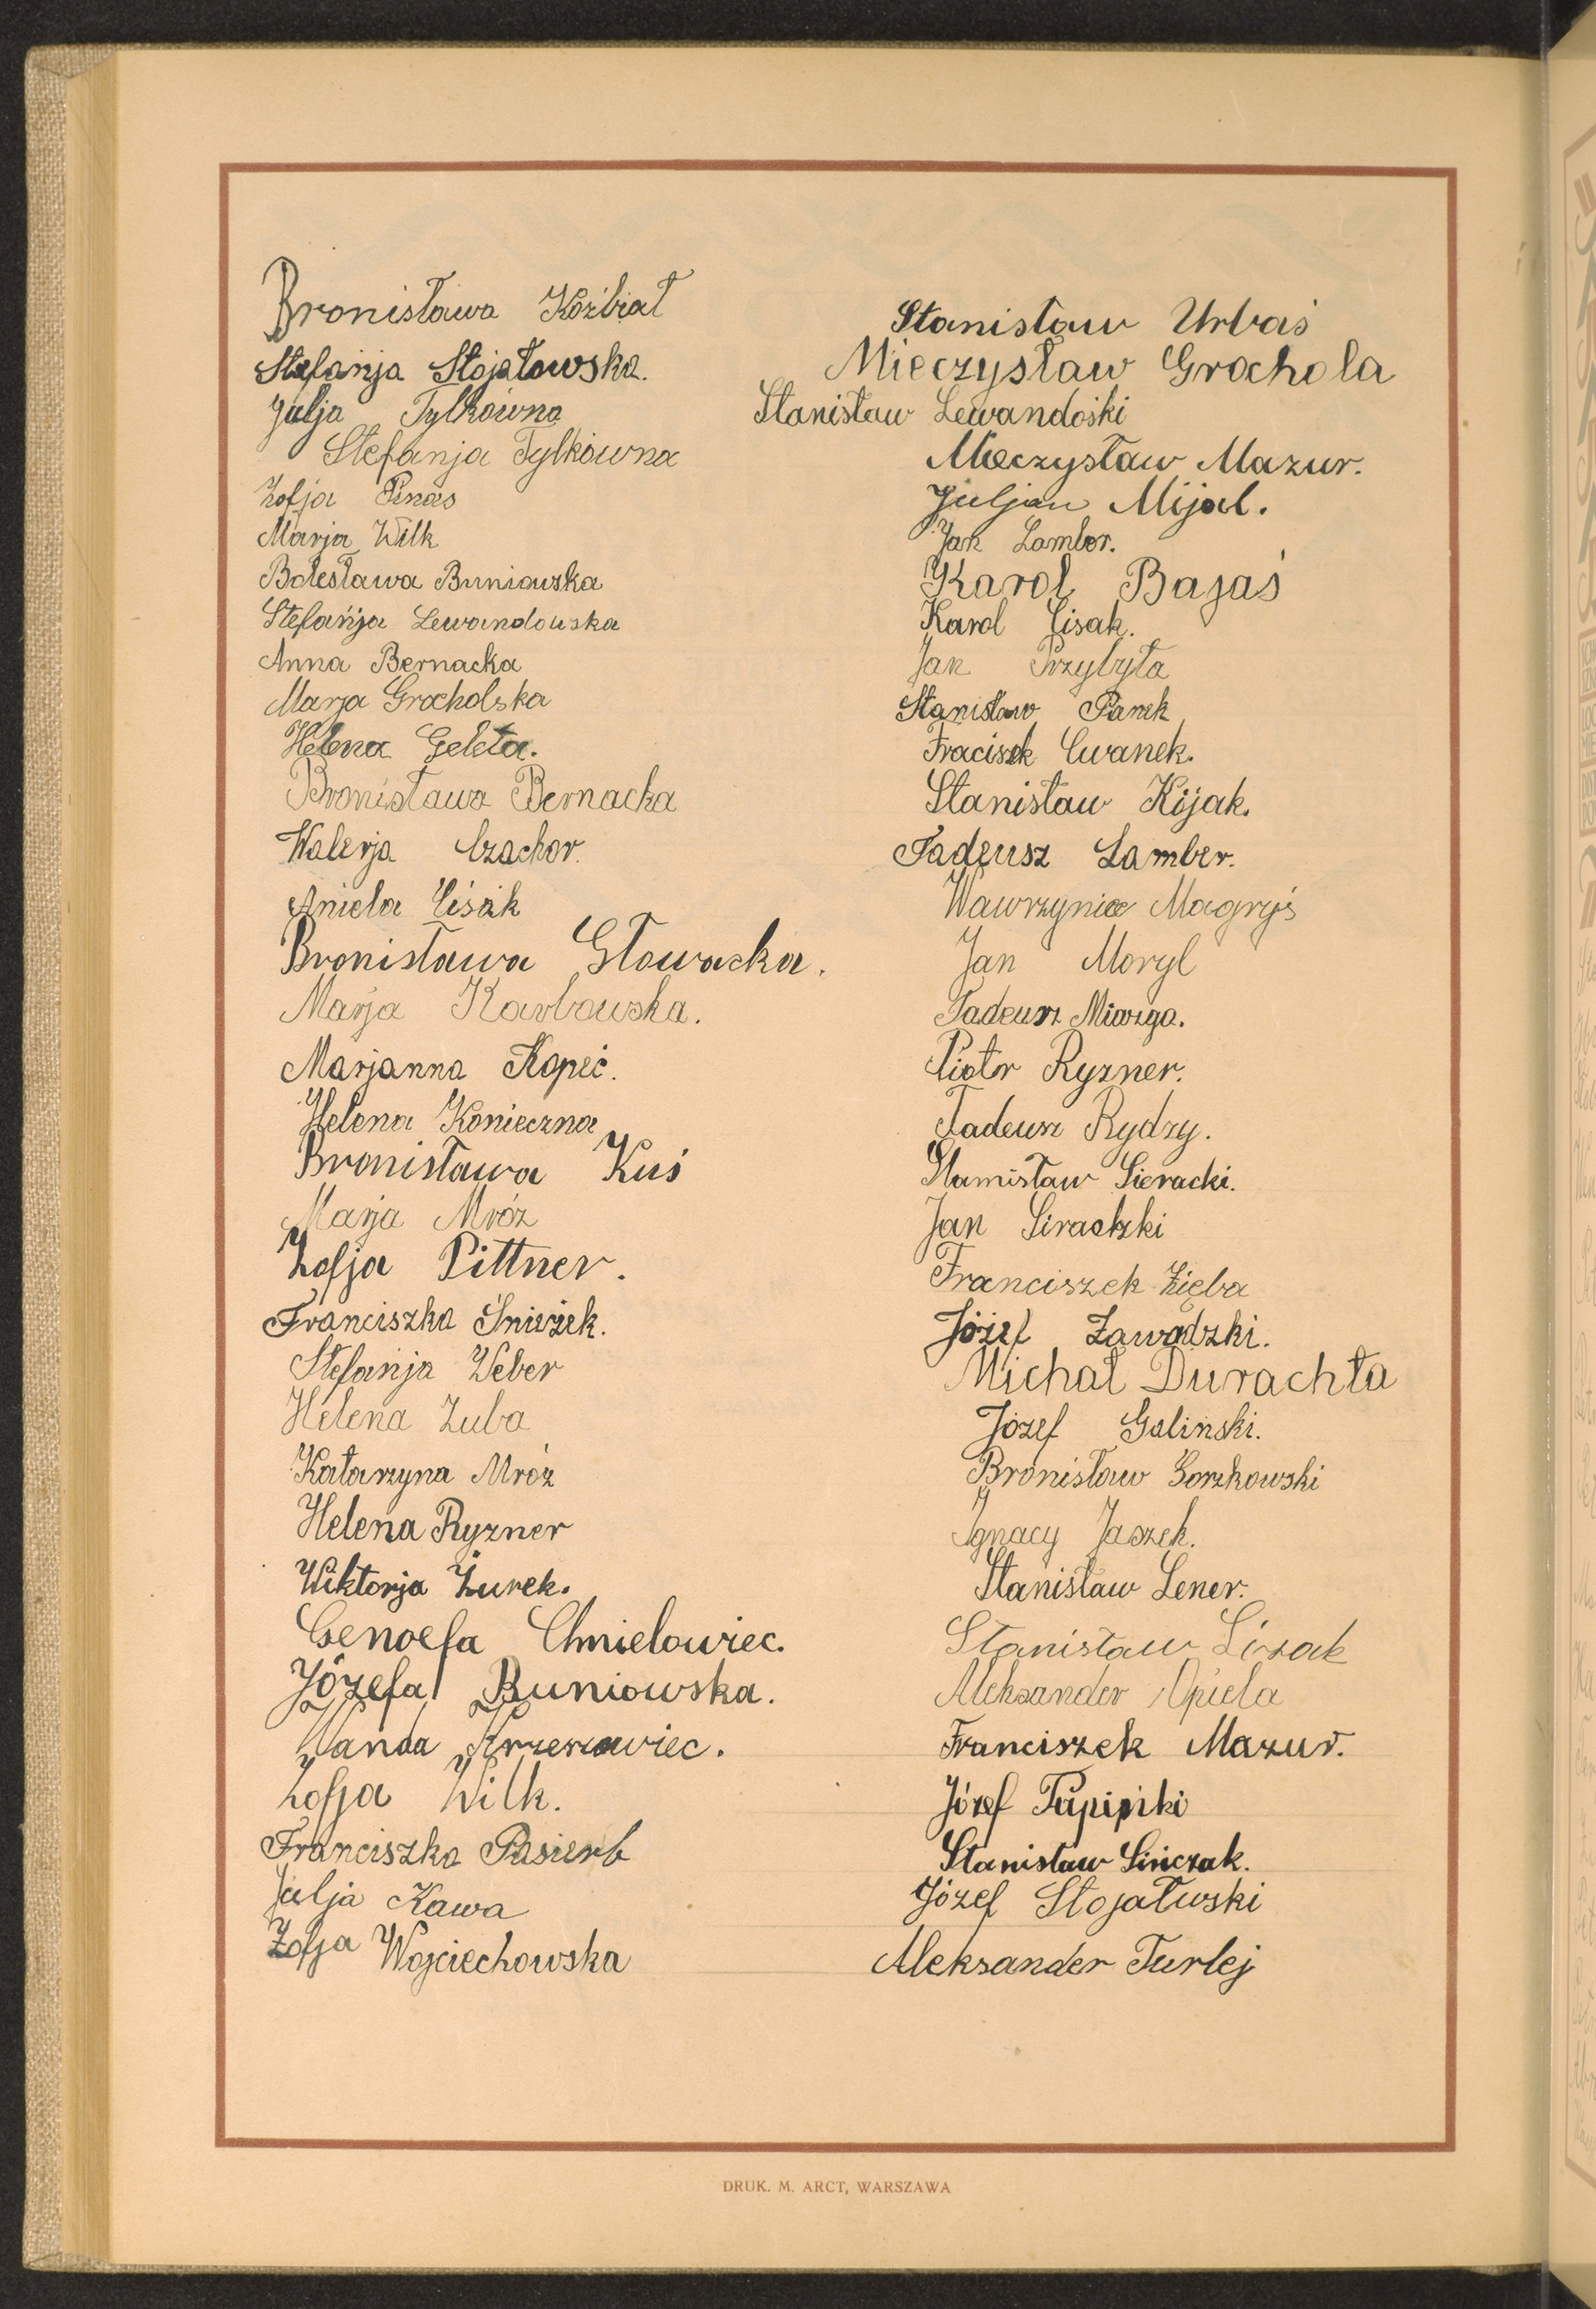 Bronisława Koźbiał
Stefanja Stojałowska.
Julja Tylkówna
Stefanja Tylkówna
Zofja Pinas
Marja Wilk
Bolesława Buniowska
Stefańja Lewandowska
Anna Bernacka
Marja Grocholska
Helena Geleta.
Bronisława Bernacka
Walerja Czachor.
Aniela Cisak
Bronisława Głowacka.
Marja Karbowska.
Marjanna Kopeć.
Helena Konieczna
Bronisława Kuś
Marja Mróz
Zofja Pittner.
Franciszka Śnieżek.
Stefanja Weber
Helena Zuba
Katarzyna Mróz
Helena Ryzner
Wiktorja Żurek.
Genoefa Chmielowiec.
Józefa Buniowska.
Wanda
Zofja Wilk.
Franciszka Pasierb
Julja Kawa
Zofja Wojciechowska
Stanisław Urbaś
Mieczysław Grochola
Stanisław Lewandoski
Mieczysław Mazur.
Juljan Mijal.
Jan Lamber.
Karol Bajaś
Karol Cisak.
Jan Przybyła
Stanisław Panek
Fraciszek Cwanek.
Stanisław Kijak.
Tadeusz Lamber.
Wawrzyniec Magryś
Jan Moryl
Tadeusz Miazga.
Piotr Ryzner.
Tadeusz Rydzy.
Stanisław Sieracki.
Jan
Franciszek Zięba
Józef Zawadzki.
Michał Durachta
Józef Galiński.
Bronisław Gorzkowski
Ignacy Jaszek.
Stanisław Lener.
Stanisław Lizak
Aleksander Opiela
Franciszek Mazur.
Józef
Stanisław Sińczak.
Józef Stojałuski
Aleksander Turlej
DRUK. M. ARCT, WARSZAWA